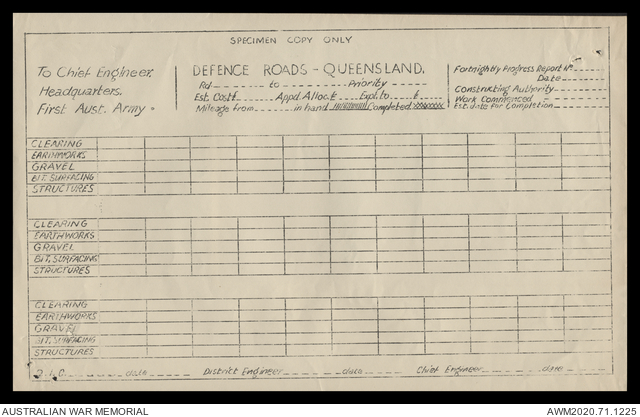 SPECIMEN COPY ONLY
To Chief Engineer,
Headquarters,
First Aust. Army.
DEFENCE ROADS - QUEENSLAND.
Rd ------ to ------ Priority ------
Est. Cost £ ------ Appd. Alloc £ ------ Expd. to ---- £ ----
Mileage from ------ in hand completed
Fortnightly Progress Report No ----
Date ------
Constructing Authority ------
Work Commenced ------
Est. date for Completion ------
CLEARING
EARTHWORKS
GRAVEL
BIT. SURFACING
STRUCTURES
CLEARING
EARTHWORKS
GRAVEL
BIT. SURFACING
STRUCTURES
CLEARING
EARTHWORKS
GRAVEL
BIT. SURFACING
STRUCTURES
------ date ------ District Engineer ------ date ------ Chief Engineer ------ date ------
AUSTRALIAN WAR MEMORIAL
AWM2020.71.1225